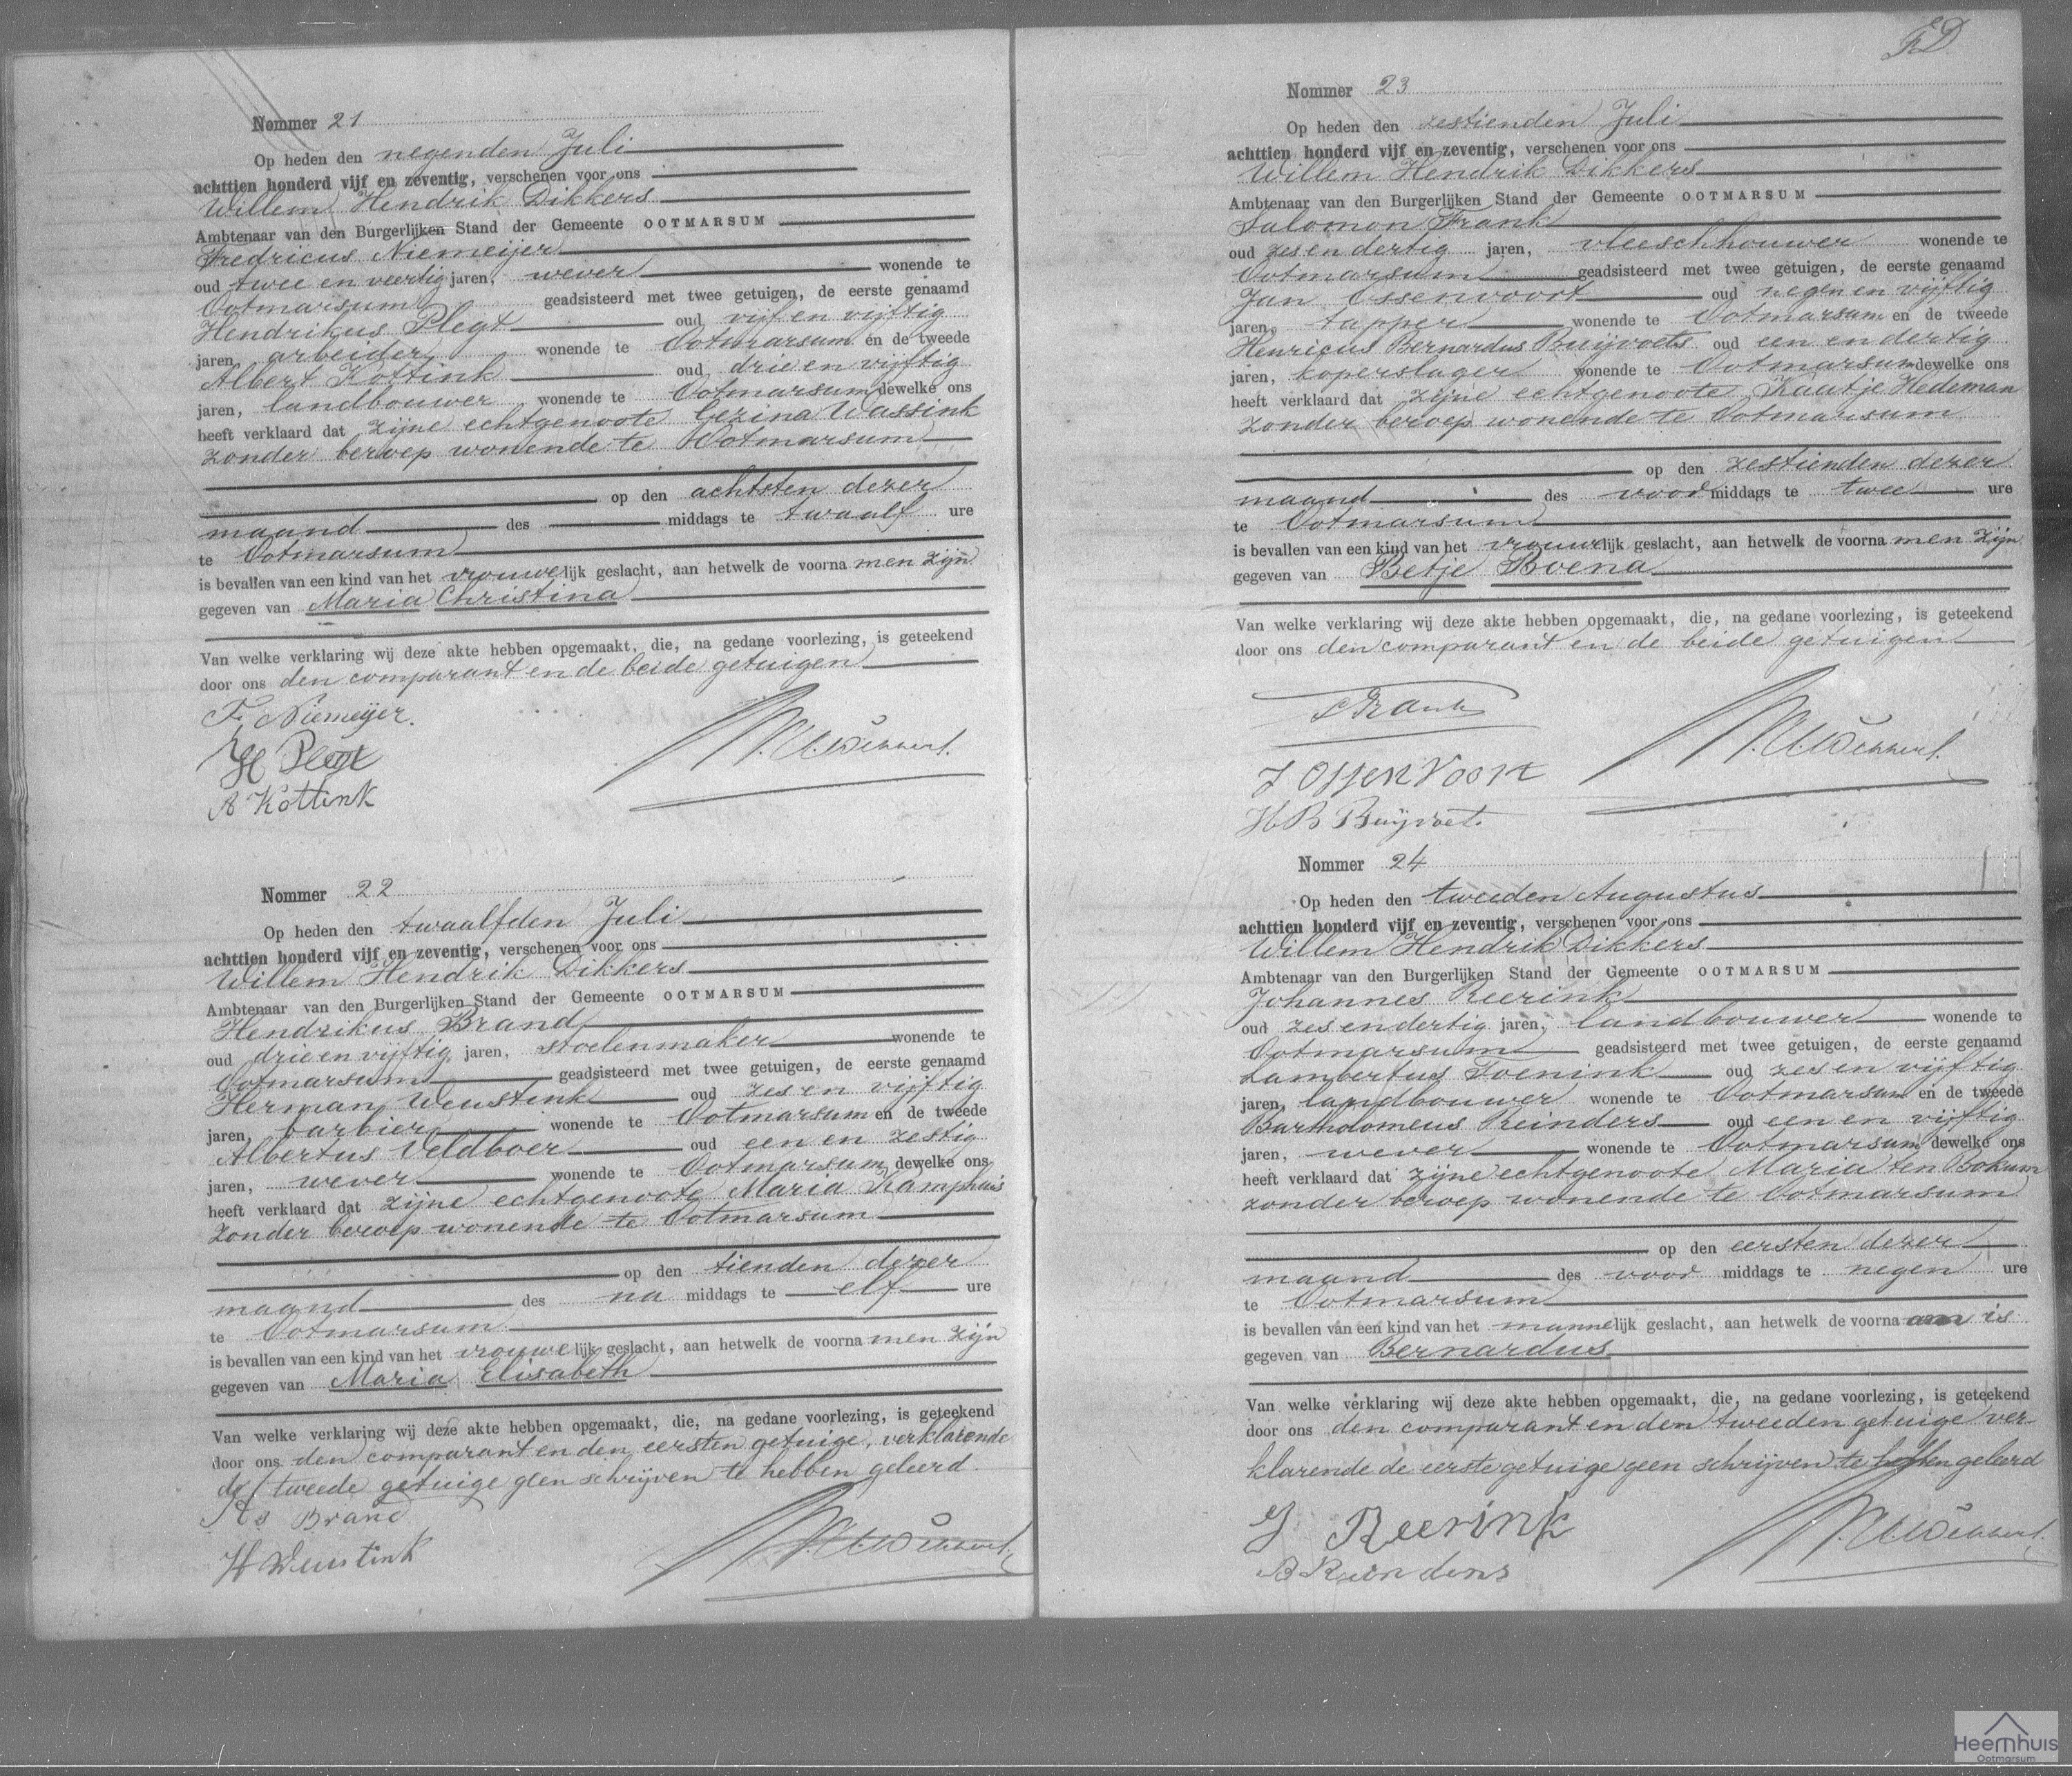 Nommer 21
Op heden den negenden Juli
achttien honderd vijf en zeventig, verschenen voor ons
Willem Hendrik Dikkers
Ambtenaar van den Burgerlijken Stand der Gemeente OOTMARSUM
Fredricus Niemeijer
oud twee en veertig jaren, wever wonende te
Ootmarsum geadsisteerd met twee getuigen, de eerste genaamd
Hendrikus Plegt oud vijf en vijftig
jaren, arbeider wonende te Ootmarsum en de tweede
Albert Kottink oud drie en vijftig
jaren, landbouwer wonende te Ootmarsum dewelke ons
heeft verklaard dat zijne echtgenoote Gezina Wassink
zonder beroep wonende te Ootmarsum
op den achtsten dezer
maand des middags te twaalf ure
te Ootmarsum
is bevallen van een kind van het vrouwelijk geslacht, aan hetwelk de voornamen zijn
gegeven van Maria Christina
Van welke verklaring wij deze akte hebben opgemaakt, die, na gedane voorlezing, is geteekend
door ons den comparant en de beide getuigen
F. Niemeyer.
H Plegt
A Kottink
Nommer 22
Op heden den twaalfden Juli
achttien honderd vijf en zeventig, verschenen voor ons
Willem Hendrik Dikkers
Ambtenaar van den Burgerlijken Stand der Gemeente OOTMARSUM
Hendrikus Brand
oud drie en vijftig jaren, stoelenmaker wonende te
Ootmarsum geadsisteerd met twee getuigen, de eerste genaamd
Herman Weustink oud zes en vijftig
jaren, barbier wonende te Ootmarsum en de tweede
Albertus Veldboer oud een en zestig
jaren, wever wonende te Ootmarsum dewelke ons
heeft verklaard dat zijne echtgenoote Maria Kamphuis
zonder beroep wonende te Ootmarsum
op den tienden dezer
maand des na middags te elf ure
te Ootmarsum
is bevallen van een kind van het vrouwelijk geslacht, aan hetwelk de voornamen zijn
gegeven van Maria Elisabeth
Van welke verklaring wij deze akte hebben opgemaakt, die, na gedane voorlezing, is geteekend
door ons den comparant en den eersten getuige, verklarende
de tweede getuige geen schrijven te hebben geleerd.
Hs Brand
H Weustink
Nommer 23
Op heden den zestienden Juli
achttien honderd vijf en zeventig, verschenen voor ons
Willem Hendrik Dikkers
Ambtenaar van den Burgerlijken Stand der Gemeente OOTMARSUM
Salomon Frank
oud zes en dertig jaren, vleeschhouwer wonende te
Ootmarsum geadsisteerd met twee getuigen, de eerste genaamd
Jan Ossenvoort oud negen en vijftig
jaren, tapper wonende te Ootmarsum en de tweede
Henricus Bernardus Buijvoets oud een en dertig
jaren, koperslager wonende te Ootmarsum dewelke ons
heeft verklaard dat zijne echtgenoote Kaatje Hedeman
zonder beroep wonende te Ootmarsum
op den zestienden dezer
maand des voor middags te twee ure
te Ootmarsum
is bevallen van een kind van het vrouwelijk geslacht, aan hetwelk de voornamen zijn
gegeven van Betje Roena
Van welke verklaring wij deze akte hebben opgemaakt, die, na gedane voorlezing, is geteekend
door ons den comparant en de beide getuigen
S Frank
J OssenVoort
H B Buijvoet.
Nommer 24
Op heden den tweeden Augustus
achttien honderd vijf en zeventig, verschenen voor ons
Willem Hendrik Dikkers
Ambtenaar van den Burgerlijken Stand der Gemeente OOTMARSUM
Johannes Reerink
oud zes en dertig jaren, landbouwer wonende te
Ootmarsum geadsisteerd met twee getuigen, de eerste genaamd
Lambertus Toenink oud zes en vijftig
jaren, landbouwer wonende te Ootmarsum en de tweede
Bartholomeus Reinders oud een en vijftig
jaren, wever wonende te Ootmarsum dewelke ons
heeft verklaard dat zijne echtgenoote Maria ten Bokum
zonder beroep wonende te Ootmarsum
op den eersten dezer
maand des voor middags te negen ure
te Ootmarsum
is bevallen van een kind van het mannelijk geslacht, aan hetwelk de voornaam is
gegeven van Bernardus
Van welke verklaring wij deze akte hebben opgemaakt, die, na gedane voorlezing, is geteekend
door ons den comparant en den tweeden getuige ver-
klarende de eerste getuige geen schrijven te hebben geleerd
J Reerink
Heemhuis
Ootmarsum